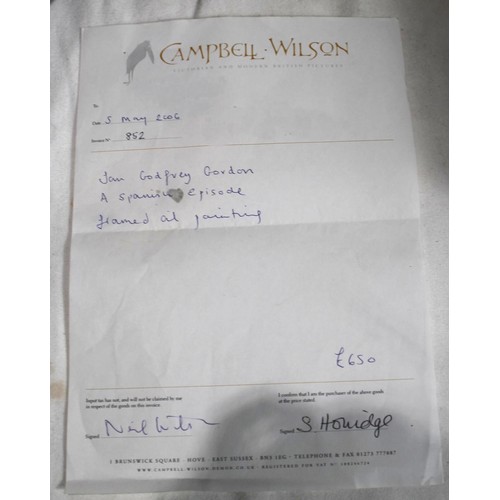 CAMPBELL · WILSON
VICTORIAN AND MODERN BRITISH PICTURES
To
Date 5 May 2006
Invoice Nº 852
Jan Godfrey Gordon
A Spanish Episode
framed oil painting
£650
Input tax has not, and will not be claimed by me
in respect of the goods on this invoice.
Signed Neil Wilson
I confirm that I am the purchaser of the above goods
at the price stated.
Signed S Horridge
1 BRUNSWICK SQUARE · HOVE · EAST SUSSEX · BN3 1EG · TELEPHONE & FAX 01273 777087
WWW.CAMPBELL-WILSON.DEMON.CO.UK · REGISTERED FOR VAT Nº